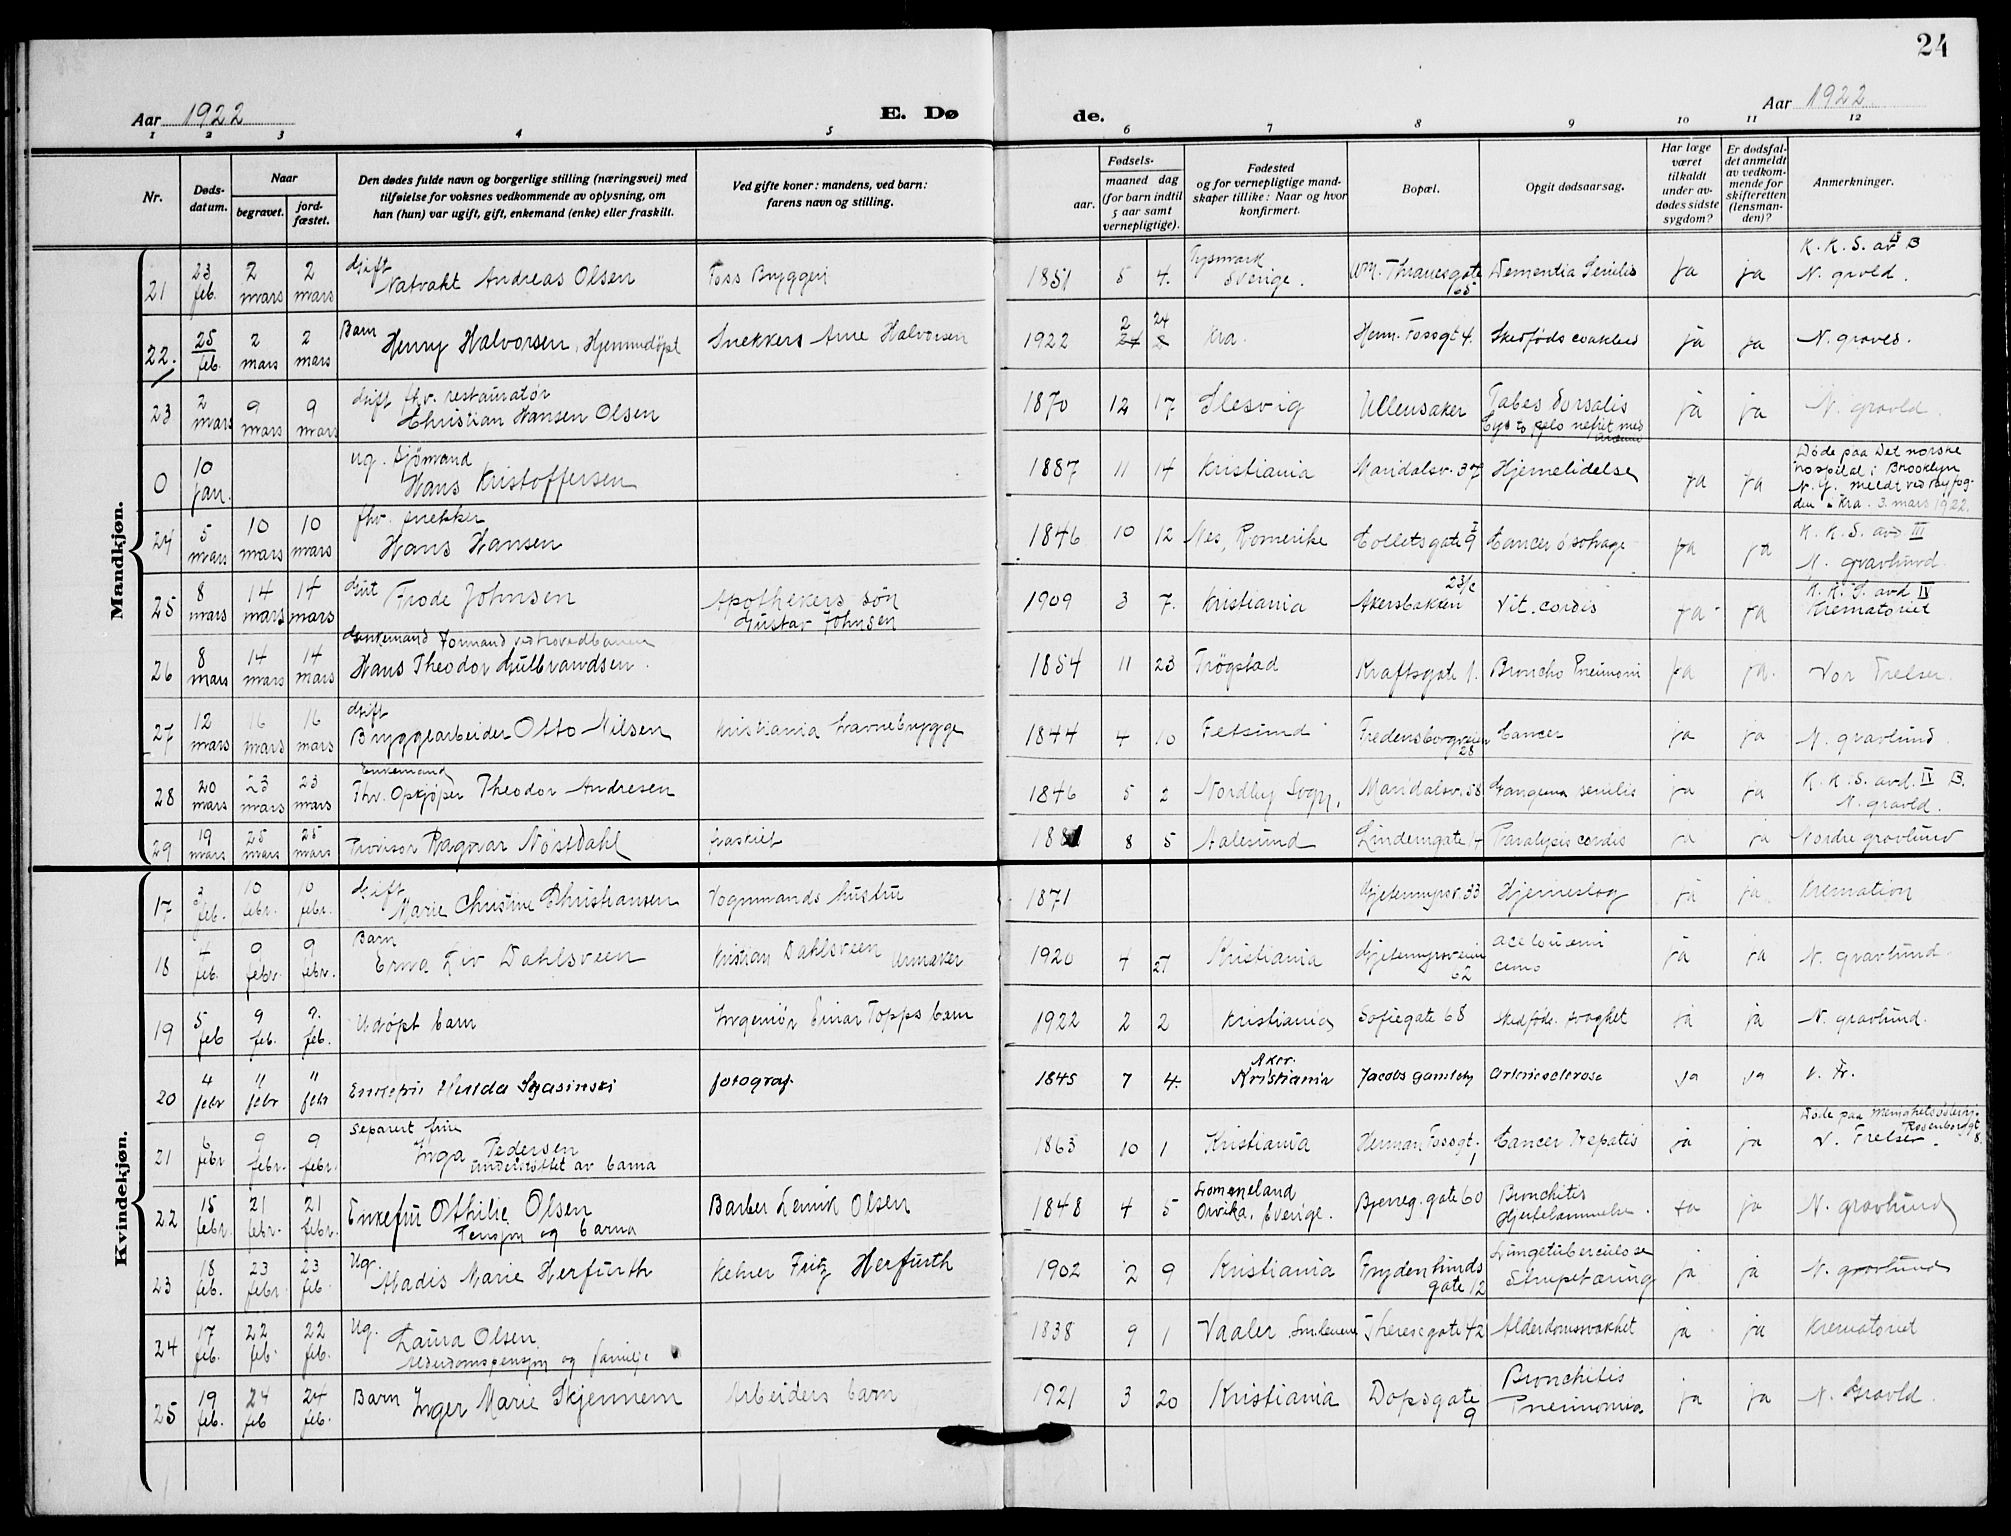 24
Aar 1922
E. Dø
de.
Aar 1922
1 2 3 4 5 6 7 8 9 10 11 12
Nr.
Døds-
datum.
Naar
begravet.
jord-
fæstet.
Den dødes fulde navn og borgerlige stilling (næringsvei) med
tilføielse for voksnes vedkommende av oplysning, om
han (hun) var ugift, gift, enkemand (enke) eller fraskilt.
Ved gifte koner: mandens, ved barn:
farens navn og stilling.
Fødsels-
aar.
maaned dag
(for barn indtil
5 aar samt
vernepligtige).
Fødested
og for vernepligtige mand-
skaper tillike: Naar og hvor
konfirmert.
Bopæl.
Opgit dødsaarsag.
Har læge
været
tilkaldt
under av-
dødes sidste
sygdom?
Er dødsfal-
det anmeldt
av vedkom-
mende for
skifteretten
(lensman-
den)?
Anmerkninger.
Mandkjøn.
21 23 feb. 2 mars 2 mars Gift Natvakt Andreas Olsen Foss Bryggeri 1851 5 4. Sverige. Thranesgate 65 Dementia Senilis ja ja K. K. S. av B N. gravld.
22. 25 feb. 2 mars 2 mars Barn Henny Halvorsen, Hjemmedøpt Snekkers Arne Halvorsen 1922 2 24 Kra. Herm. Fossgt 4. ja ja N. gravld.
23 2 mars 9 mars 9 mars Gift fhv. restauratør Christian Hansen Olsen 1870 12 17 Slesvig Ullensaker Tabes dorsalis ja ja N. gravld.
0 10 jan. ug. sjømand Hans Kristoffersen 1887 11 14 Kristiania Maridalsv. 37 Hjernelidelse ja ja Døde paa Det norske hospital i Brooklyn N. Y. meldt ved byfog- den i Kra. 3. mars 1922.
24 5 mars 10 mars 10 mars fhv. snekker Hans Hansen 1846 10 12 Nes, Romerike Colletsgate 9 I Cancer øsofage ja ja K. K. S. avd III N. gravlund.
25 8 mars 14 mars 14 mars Gut Frode Johnsen Apothekers søn Gustav Johnsen 1909 3 7. Kristiania Akersbakken 23/c Vit. cordis ja ja K. K. S. avd IV Krematoriet
26 8 mars 14 mars 14 mars Enkemand Formand ved hovedbanen Hans Theodor Gulbrandsen. 1854 11 23 Trøgstad Kraftsgate 1. Broncho Pneimoni ja ja. Vor Frelser.
27 12 mars 16 mars 16 mars Gift Bryggearbeider Otto Nilsen Kristiania havnebrygge 1844 4 10 Fetsund Fredensborgveien 28 Cancer ja ja N. gravlund.
28 20 mars 23 mars 23 mars Enkemand Fhv. Opkjøper Theodor Andresen 1846 5 2 Nordby Sogn. Maridalsv. 58 Gangena senilis ja ja K. K. S. avd. IV B. N. gravld.
29 19 mars 25 mars 25 mars Provisor Ragnvar Nøstdahl fraskilt 1881 8 5 Aalesund Lindemgate 14 Paralysis cordis ja ja Nordre gravlund
Kvindekjøn.
17 3 feb. 10 febr. 10 febr. Gift Marie Christine Christiansen Vognmands hustru 1871 Gjetemyrsv. 33 Hjerneslag ja ja Kremation
18 4 feb. 9 febr. 9 febr. Barn Erna Liv Dahlsveen Kristian Dahlsveen Urmaker 1920 4 27 Kristiania Gjetemyrsveien 62 ja ja N. gravlund.
19 5 feb 9 feb. 9. feb. Udøpt barn Ingeniør Einar Topps barn 1922 2 2 Kristiania Sofiegate 68 Medføds. svaghet ja ja N. gravlund.
20 4 febr " febr " febr Enkefru Hulda fotograf. 1845 7 4. Aker. Kristiania Jacobs gamlehj arteriosclerose ja ja V. Fr.
21 6 febr 9 febr. 9 febr. Separert frue Inga Pedersen understøttet av barna 1863 10 1 Kristiania Herman Fossgt. 1 Cancer Hepatis ja ja Døde paa Menighetssøsterhj. Rosenborggt 8. V. Frelser.
22 15 febr. 21 febr. 21 febr. Enkefru Othilie Olsen Pensjon og barna Barber Olsen 1848 4 5 Arvika, Sverige. Bjerreg. gate 60 Bronchitis Hjertelammelse. ja ja N. gravlund
23 18 feb. 23 febr. 23 feb. Ug. Aladis Marie Herfurth Kelner Fritz Herfurth 1902 2 9 Kristiania Frydenlunds gate 12 Lungetuberculose Strupetæring ja ja N. gravlund
24 17 feb. 22 feb. 22 feb. Ug. Laura Olsen. Alderdomspensjon og familje 1838 9 1 Vaaler Smlenene Theresegate 42 Alderdomssvakhet ja ja Krematoriet
25 19 feb. 24 feb 24 feb. Barn Inger Marie Skjennem Arbeiders barn 1921 3 20 Kristiania Dopsgate 9 Bronchitis Pneimonia ja ja N. Gravld.